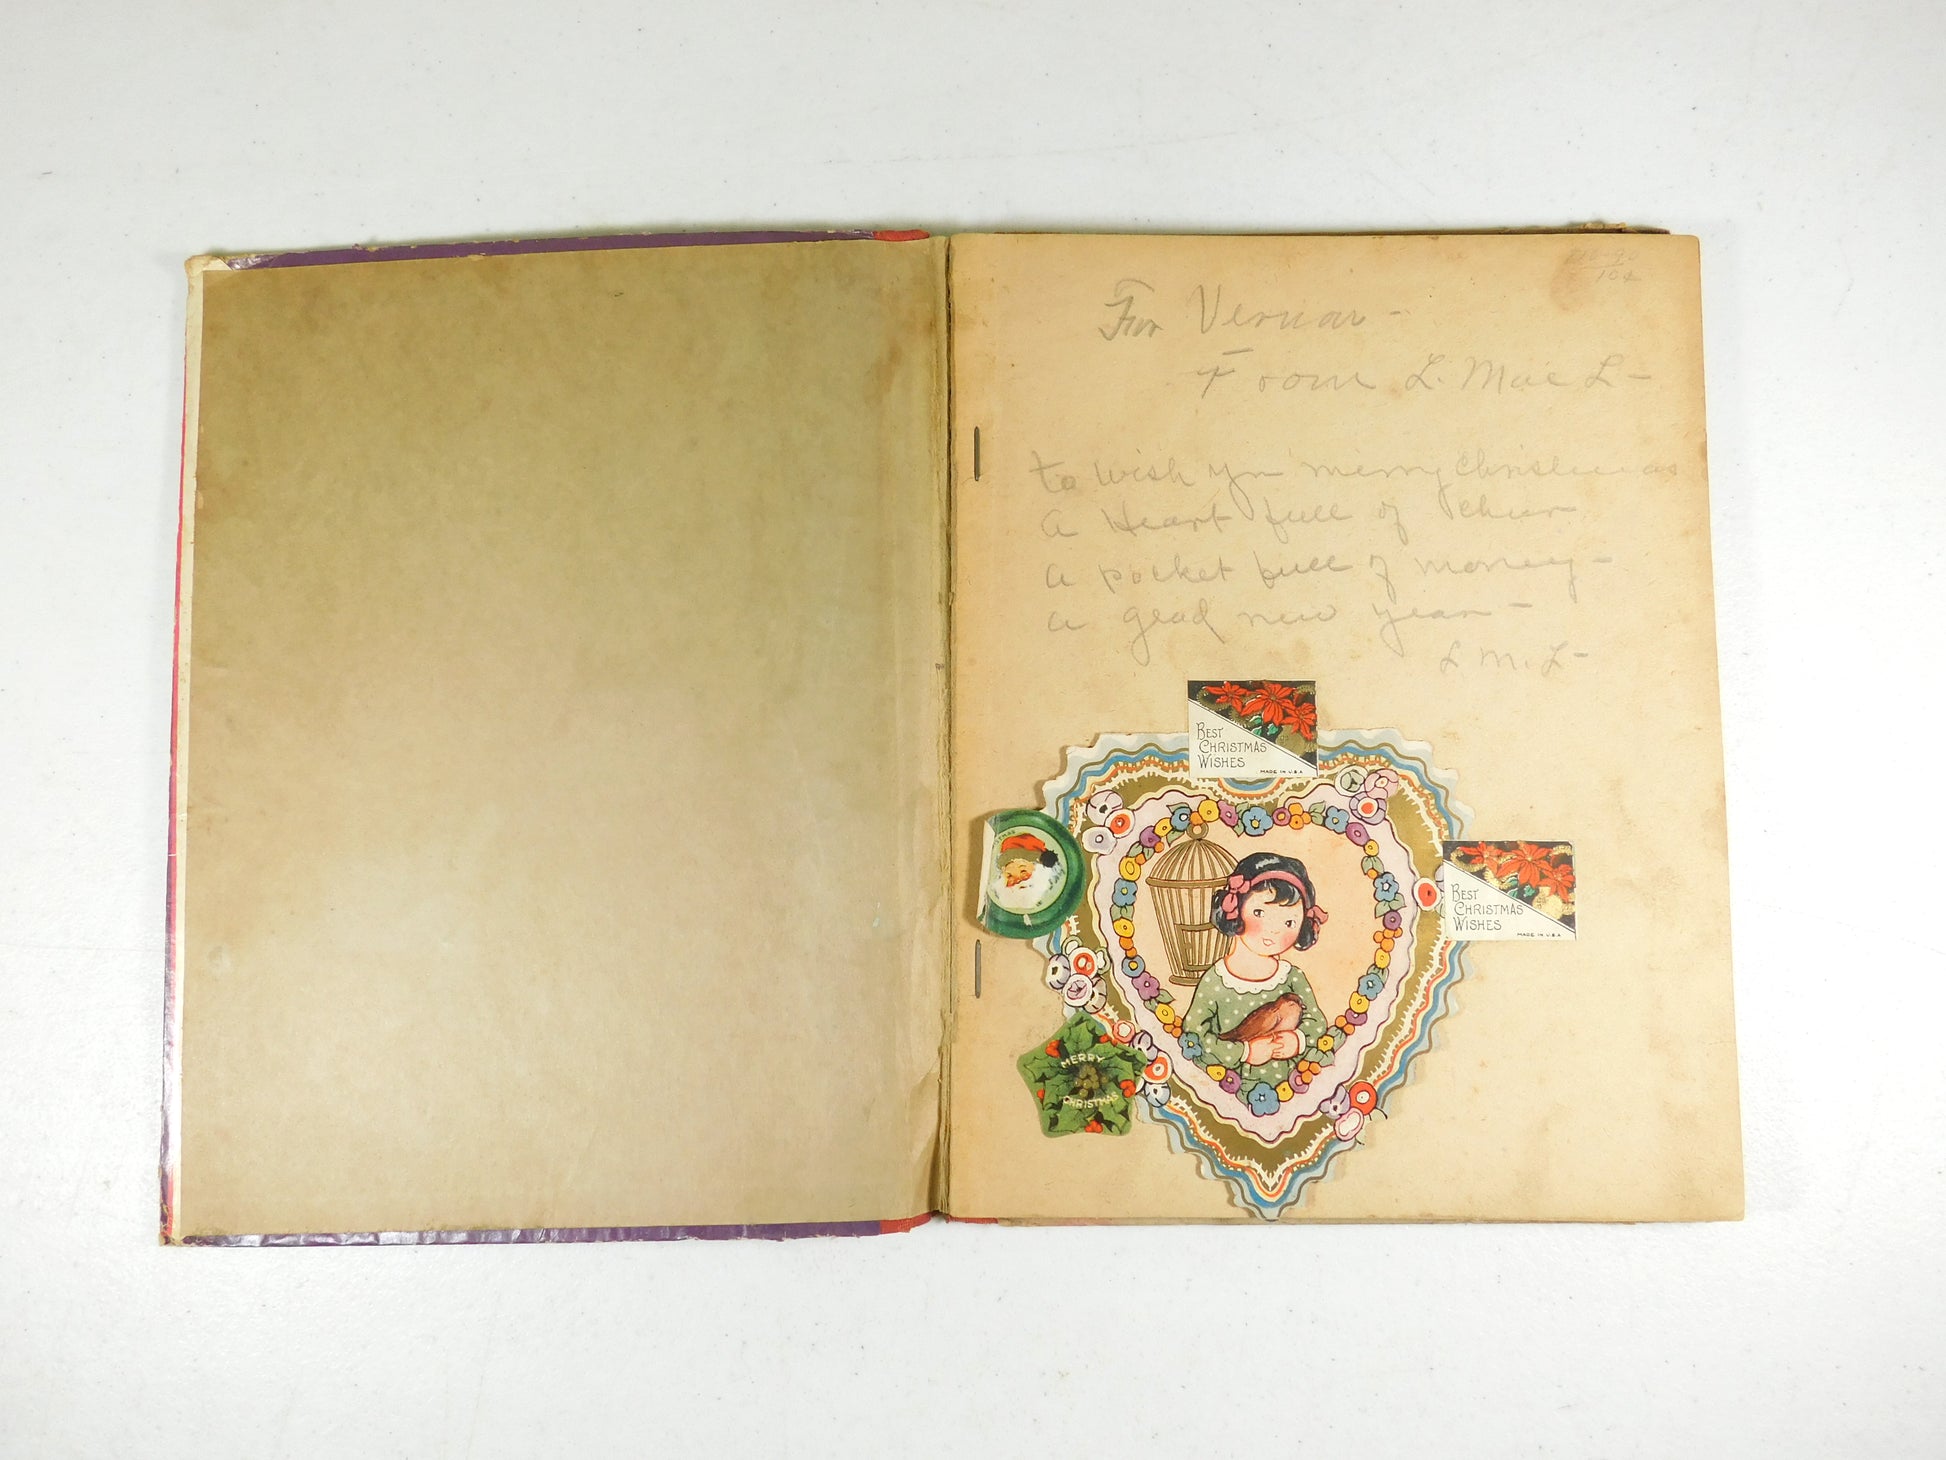 10¢
For Vernon -
From L. Mae L-
to wish you merry Christmas
a Heart full of cheer
a pocket full of money -
a glad new year -
L M. L-
BEST
CHRISTMAS
WISHES
MADE IN U.S.A
BEST
CHRISTMAS
WISHES
MADE IN U.S.A
MERRY
CHRISTMAS